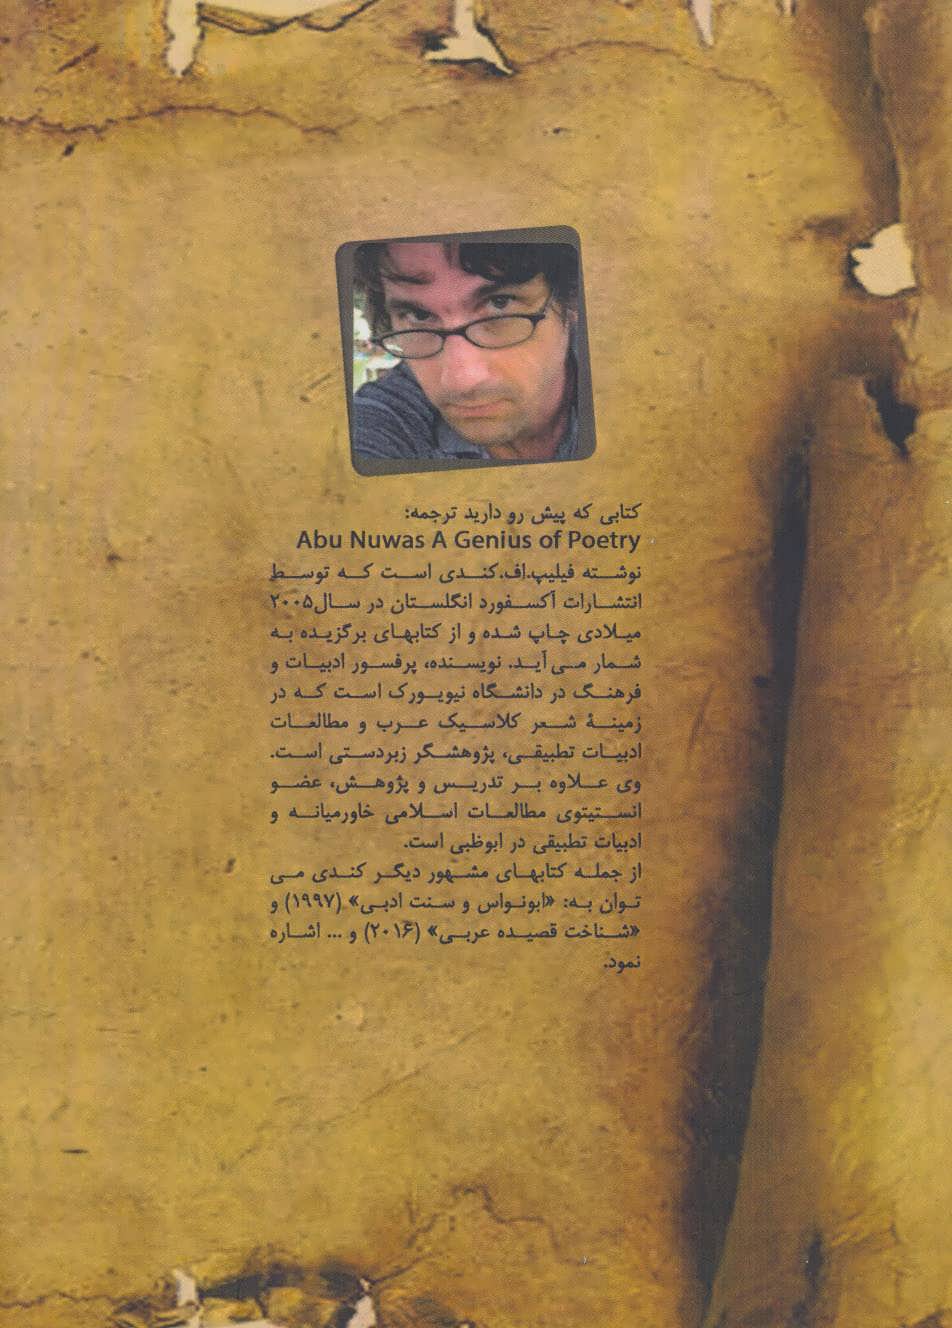 کتابی که پیش رو دارید ترجمه:
Abu Nuwas A Genius of Poetry
نوشته فیلیپ.اف.کندی است که توسط
انتشارات آکسفورد انگلستان در سال۲۰۰۵
میلادی چاپ شده و از کتابهای برگزیده به
شمار می آید. نویسنده، پرفسور ادبیات و
فرهنگ در دانشگاه نیویورک است که در
زمینهٔ شعر کلاسیک عرب و مطالعات
ادبیات تطبیقی، پژوهشگر زبردستی است.
وی علاوه بر تدریس و پژوهش، عضو
انستیتوی مطالعات اسلامی خاورمیانه و
ادبیات تطبیقی در ابوظبی است.
از جمله کتابهای مشهور دیگر کندی می
توان به: «ابونواس و سنت ادبی» (۱۹۹۷) و
«شناخت قصیده عربی» (۲۰۱۶) و ... اشاره
نمود.